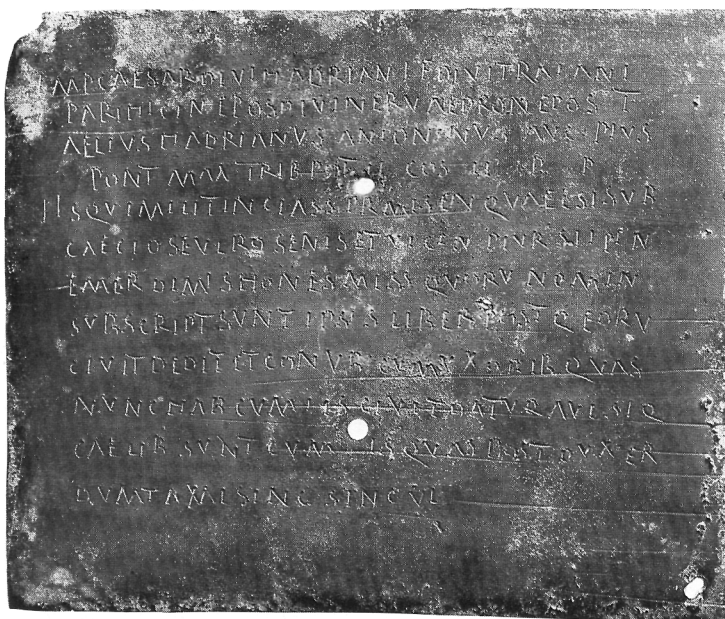 IMP CAESAR DIVI HADRIANI F DIVI TRAIANI
PARTHICI N EPOS DIVI NERVAE PRON EPOS T
AELIVS HADRIANVS ANTONINVS AVG PIVS
PONT MAX TRIB POT II COS II P P
IIS QVI MILIT IN CLASS PR MISEN QVAE EST SVB
SENIS ET VICEN PLVR STIPEN
EMER DIMIS HONES MISS QVORV NOMIN
SVBSCRIPT SVNT IPSIS LIBER POSTQ EORV
CIVIT DEDIT ET CONVB CVM VXORIB QVAS
NVNC HAB CVM IIS CIVIT DATVR AVT SIQ
CAELIB SVNT CVM IIS QVAS POST DVXER
DVMTAXAT SING SINGVL